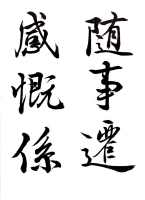 随事遷
感慨係